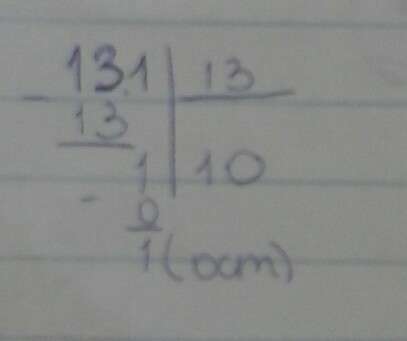 131 13
- 13
1 10
- 0
1 (ост)